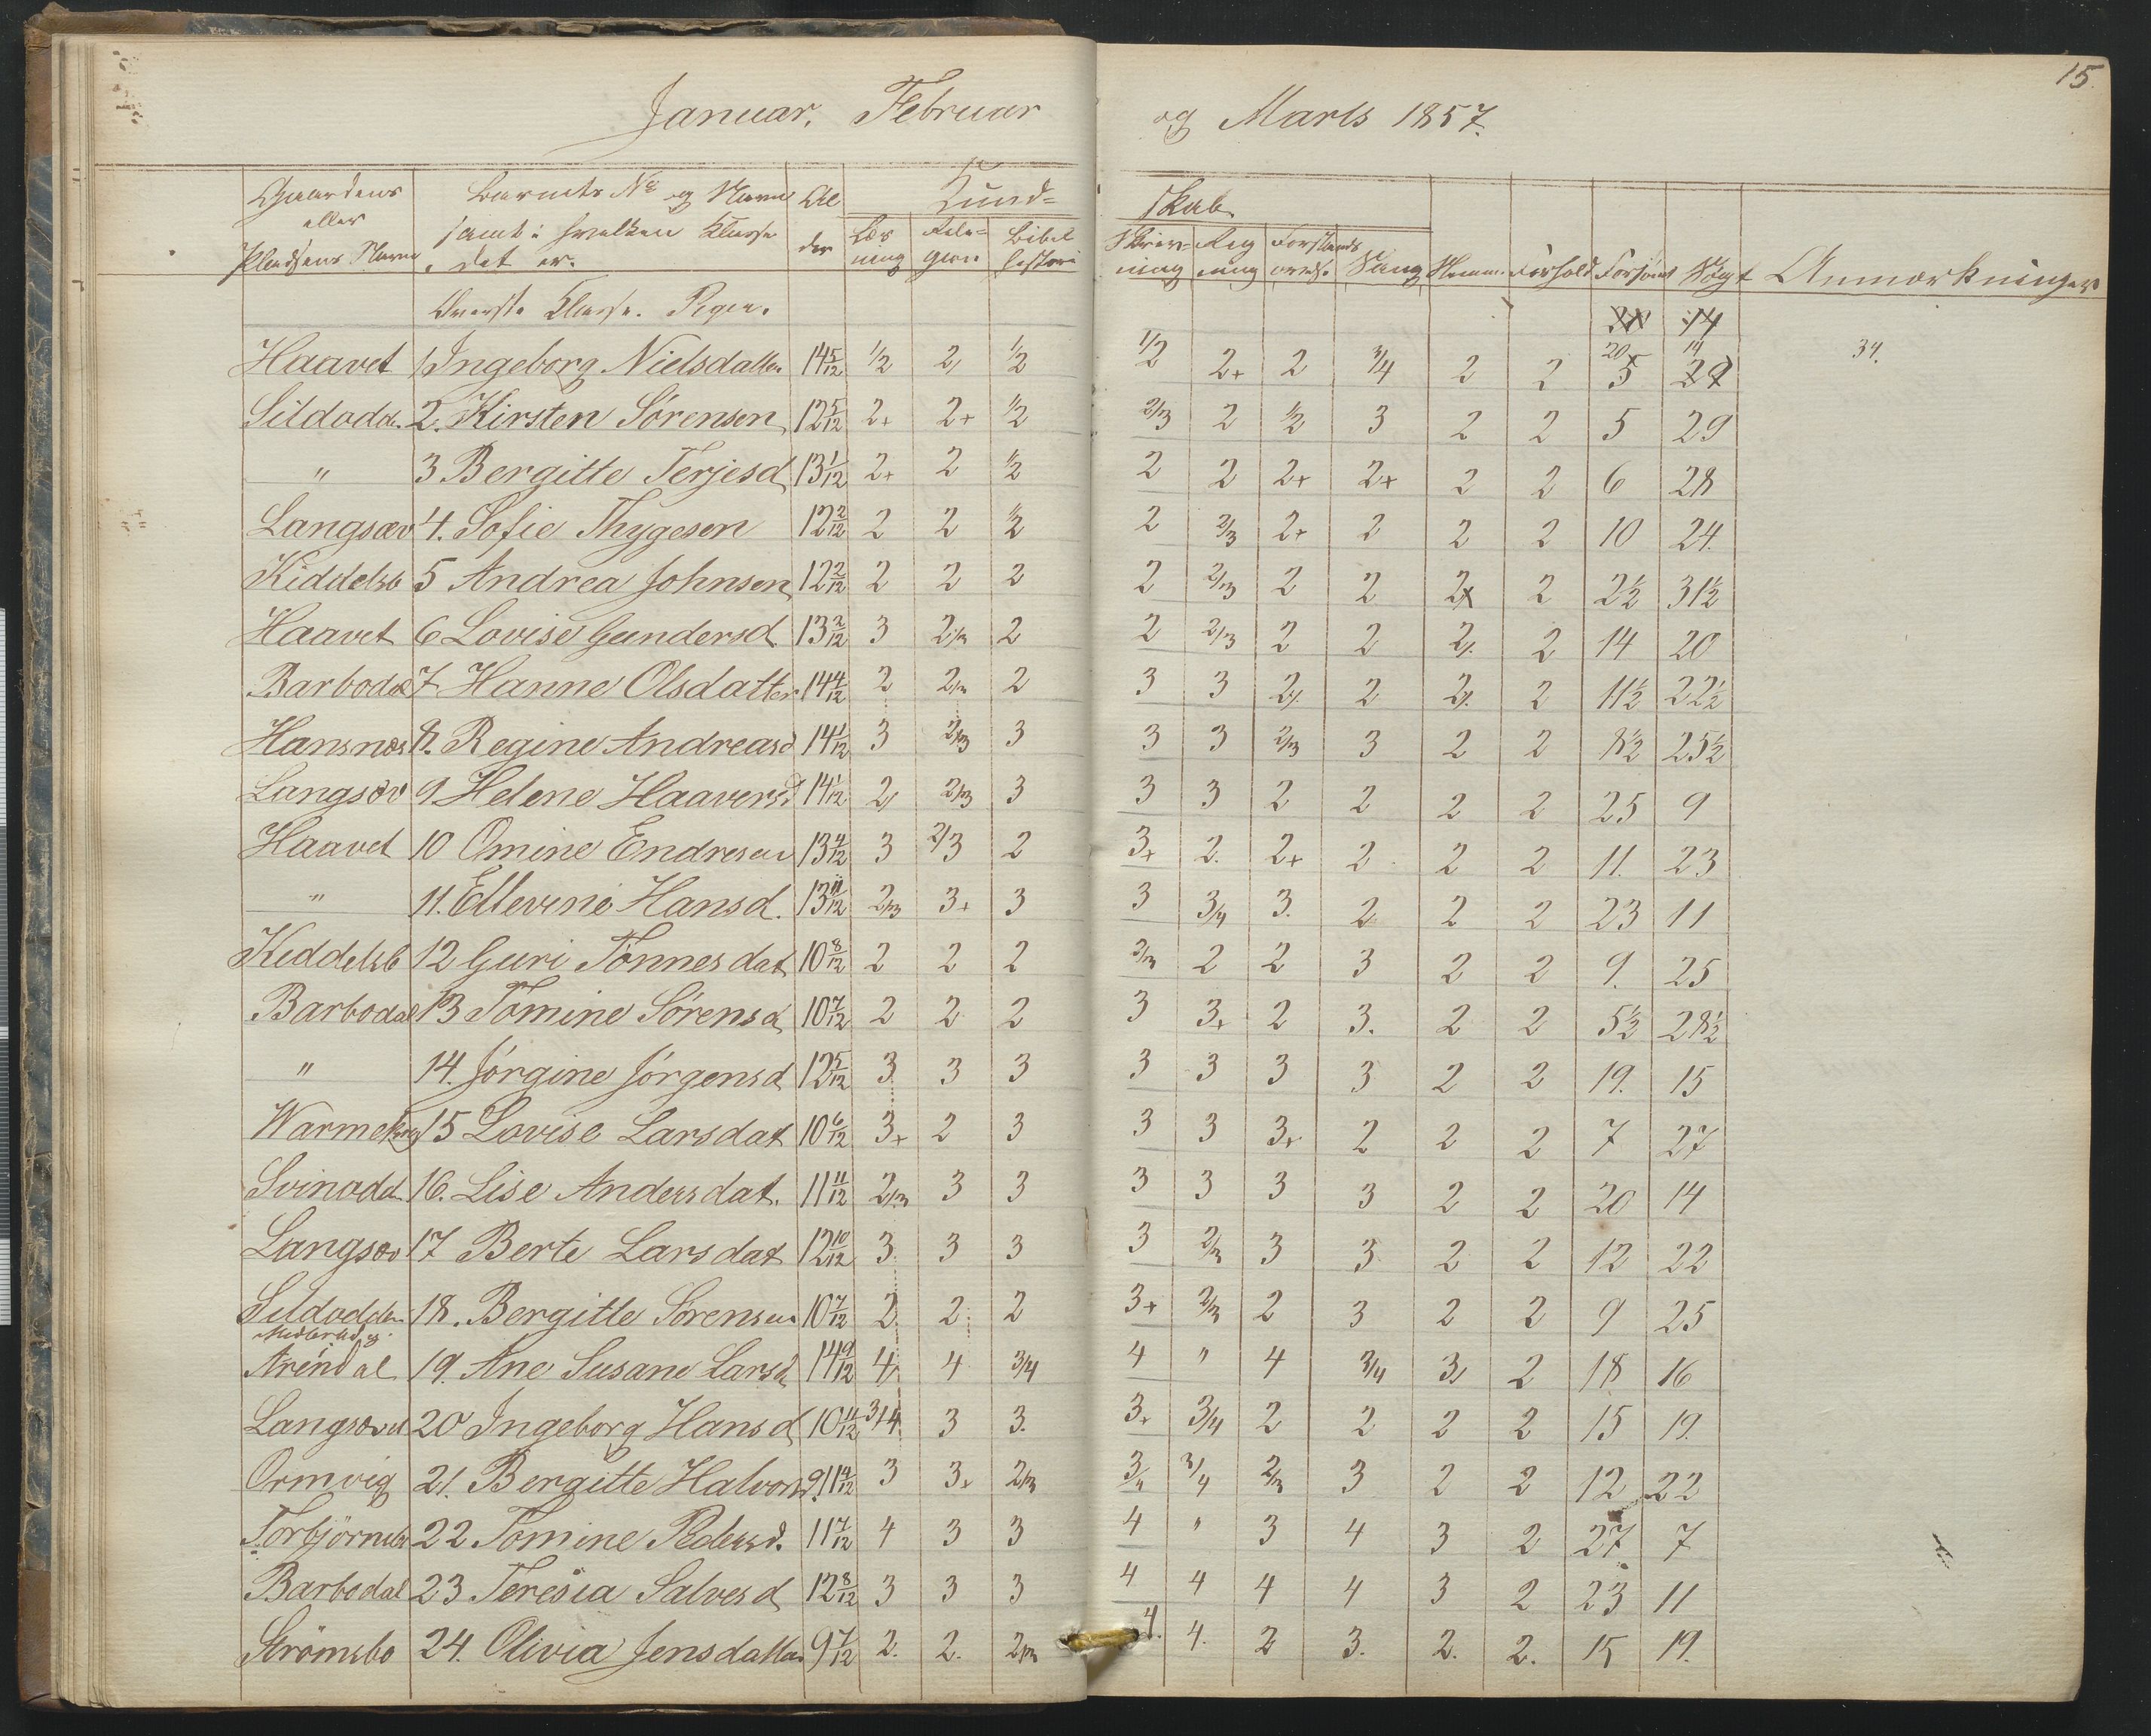 15.
Januar, Februar og Marts 1857.
Gaardens eller Pladsens Navn | Barnets No og Navn samt i hvilken Klasse det er. | Al der | Kund= skab.
Læs ning | Reli= gion | Bibel historie | Skriv= ning | Reg ning | Forstands | Sang | Hukom. | Forhold | Forsömt | Sögt | Anmærkninger
Överste Klasse. Piger.
14
20 14
Haavet 1 Ingeborg Nielsdatter 14 5/12 1/2 2 1/2 1/2 2+ 2 3/4 2 2 5 29 34.
Sildodd. 2. Kirsten Sörensen 12 5/12 2+ 2+ 1/2 2/3 2 1/2 3 2 2 5 29
" 3 Bergitte Terjesd 13 1/12 2+ 2 1/2 2 2 2+ 2+ 2 2 6 28
Langsæv 4. Sofie Thygesen 12 2/12 2 2 1/2 2 2/3 2+ 2 2 2 10 24.
Kiddelsb 5 Andrea Johnsen 12 2/12 2 2 2 2 2/3 2 2 2 2 2½ 31½
Haavet 6 Lovise Gundersd. 13 2/12 3 2/3 2 2 2/3 2 2 2 2 14 20
Barbodal 7 Hanne Olsdatter 14 4/12 2 2/3 2 3 3 2 2 2 2 11½ 22½
Hansnæs 8. Regine Andreasd 14 1/12 3 2/3 3 3 3 2/3 3 2 2 8½ 25½
Langsæv 9 Helene Haaversd 14 1/12 2 2/3 3 3 3 2 2 2 2 25 9
Haavet 10 Omine Endresen 13 4/12 3 2/3 2 3+ 2. 2+ 2 2 2 11. 23
" 11. Ellevine Hansd. 13 11/12 2/3 3+ 3 3 3/4 3. 2 2 2 23 11
Kiddelsb 12 Guri Tönnesdat 10 8/12 2 2 2 2/3 2 2 3 2 2 9. 25
Barbodal 13 Tomine Sörensd 10 7/12 2 2 2 3 3+ 2 3. 2 2 5½ 28½
" 14. Jörgine Jörgensd 12 5/12 3 3 3 3 3 3 3 2 2 19. 15
Warmekrog 15 Lovise Larsdat 10 6/12 3+ 2 3 3 3 3+ 2 2 2 7 27
Svinodd. 16. Lise Andersdat. 11 11/12 2/3 3 3 3 3 3 3 2 2 20 14
Langsæv 17 Berte Larsdat 12 10/12 3 3 3 3 2/3 3 3 2 2 12 22
Sildodden 18. Bergitte Sörensen 10 7/12 2 2 2 3+ 2/3 2 3 2 2 9 25
Arendal 19. Ane Susane Larsd 14 9/12 4 4 3/4 4 " 4 3/4 3 2 18 16
Langsævd 20 Ingeborg Hansd 10 11/12 3/4 3 3. 3+ 3/4 2 2 2 2 15 19.
Ormvig 21. Bergitte Halvorsd. 11 4/12 3 3+ 2/3 3/4 3/4 2/3 3 2 2 12 22
Torbjörnsb 22 Tomine Pedersd. 11 7/12 4 3 3 4 " 3 4 3 2 27 7
Barbodal 23 Teresia Salvesd 12 8/12 3 3 3 4 4 4 4 3 2 23 11
Strömsbo 24. Olivia Jensdatter 9 7/12 2. 2. 2/3 4. 4. 2 3. 2. 2. 15 19.